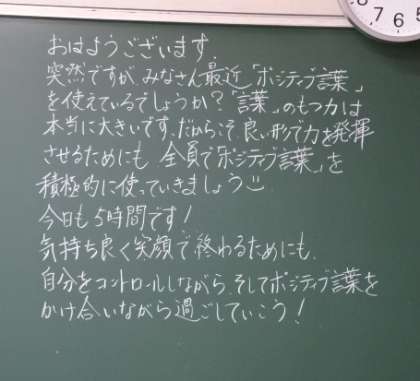 8
7 6 5
おはようございます。
突然ですが、みなさん最近「ポジティブ言葉」
を使えているでしょうか?「言葉」のもつ力は
本当に大きいです。だからこそ良い形で力を発揮
させるためにも、全員で「ポジティブ言葉」を
積極的に使っていきましょう
今日も5時間です!
気持ち良く笑顔で終わるためにも、
自分をコントロールしながら、そしてポジティブ言葉を
かけ合いながら過ごしていこう!